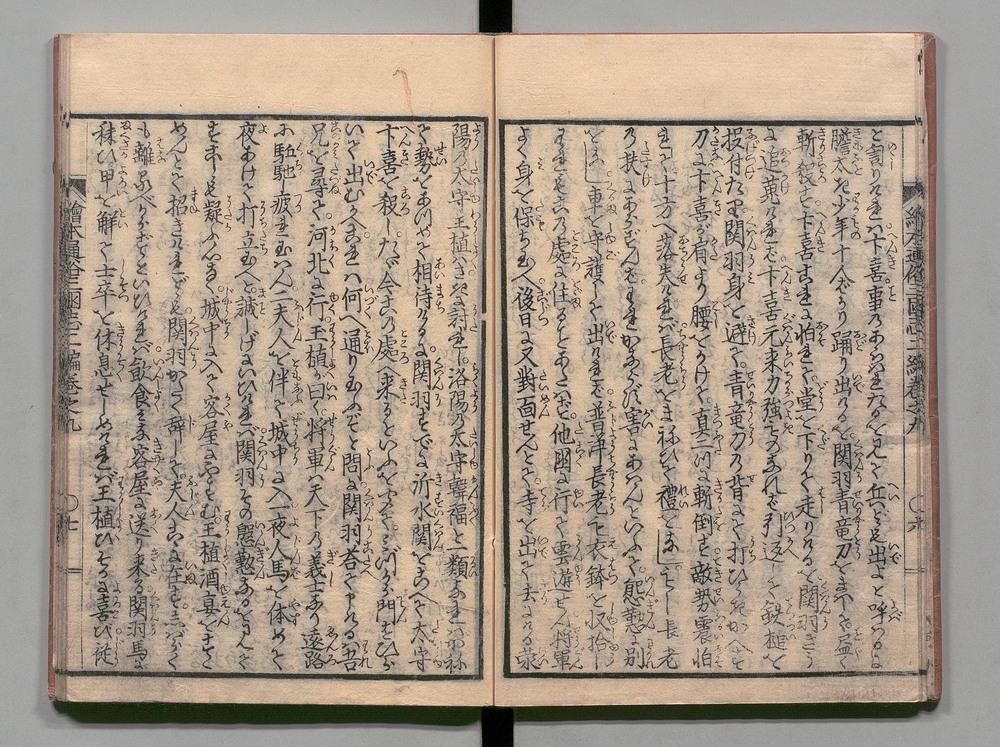 と罵りければ卞喜事のあらはれたるを見て兵ども出よと呼はるに
膽太き少年十人ばかり踊り出るを関羽青竜刀をまはして盡く
斬殺せば卞喜すは怕れて堂を下りて走りけるを関羽うしろ
に追蒐ければ卞喜元来力強き者なれば引返して鉄槌を
投付たり関羽身を避て青竜刀の背にて打ひらき
刀に卞喜が首より腰をかけて真二つに斬倒す敵勢震怕
れて十方へ落失ければ長老をまねひて禮をなし長老
の扶にあらずんばわれかならず害にあはんといふて慇懃に別
をなし車を守護して出ければ普浄長老も衣鉢を収拾
われもこの處に住ることあたはず他国に行て雲游せん将軍
よく身を保ち玉へ後日に又對面せんとて寺を出て去にける滎
陽の太守王植はさきに討れし洛陽の太守韓福と類あれば
勢をあつめて相待けるに関羽すでに沂水関をこへて太守
卞喜を殺したゞ今この處へ来るといふをきゝてみづから門をひら
いて出むかへ公は何へ通り玉ふぞと問ば関羽答て申けるは吾
兄を尋て河北に行王植が曰く将軍は天下の義士なり遠路
に駈馳し疲れ玉はん二夫人を伴て城中に入一夜人馬を休めて
夜あけて打立玉へと誠しげにいひければ関羽その慇懃なるを見て
すこしも疑ふ心なく城中に入て客屋にやすむ王植酒宴をすゝ
めんとて招きけれども関羽かたく辞して夫人こゝに在せばみだりに
も離るべからずといひければ飲食を客屋に送り来る関羽馬に
秣ひ甲を解て士卒を休息せしめければ王植ひそかに喜び従
繪本通俗三國志二編巻之九
七